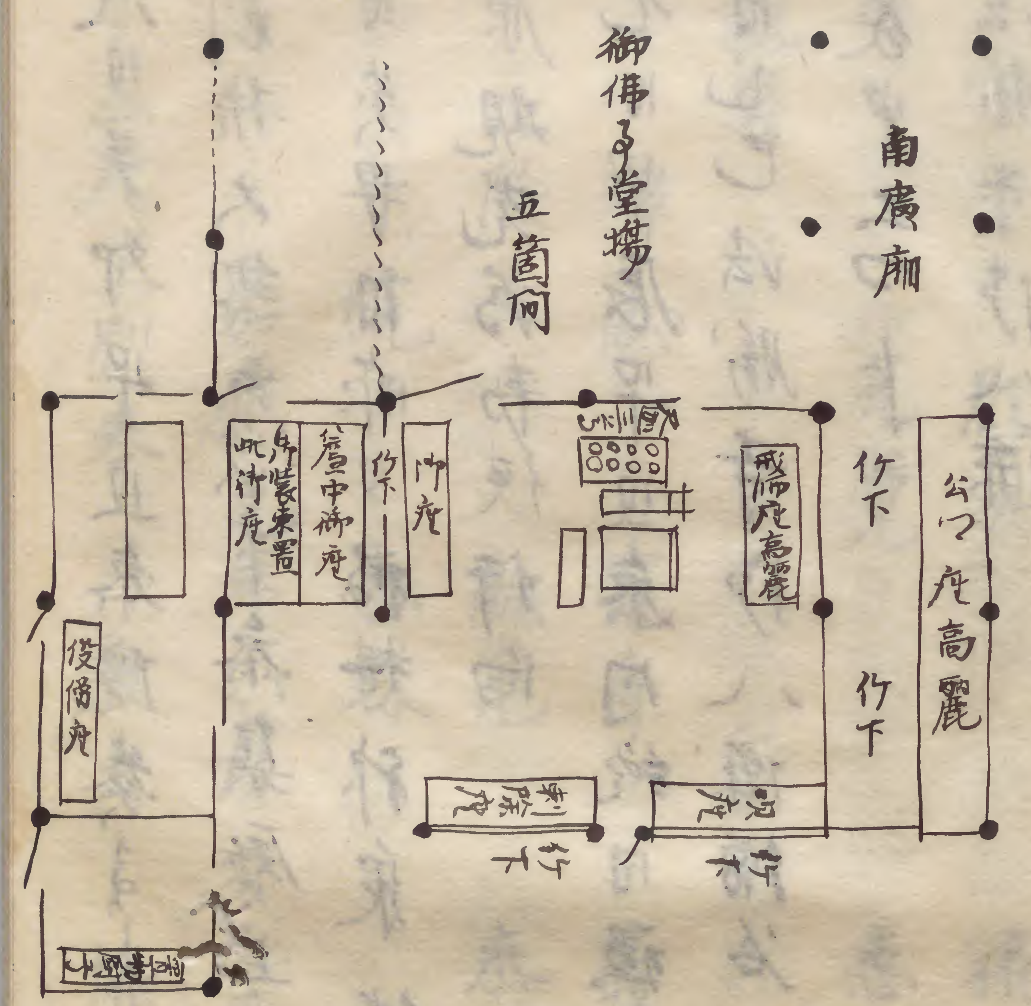 南廣廂
御佛事堂場
五箇間
公卿座高麗
竹下
竹下
戒師座高麗
御座
竹下
簾中御座
御装束置
此御座
役僧座
唄座
竹下
剃除座
竹下